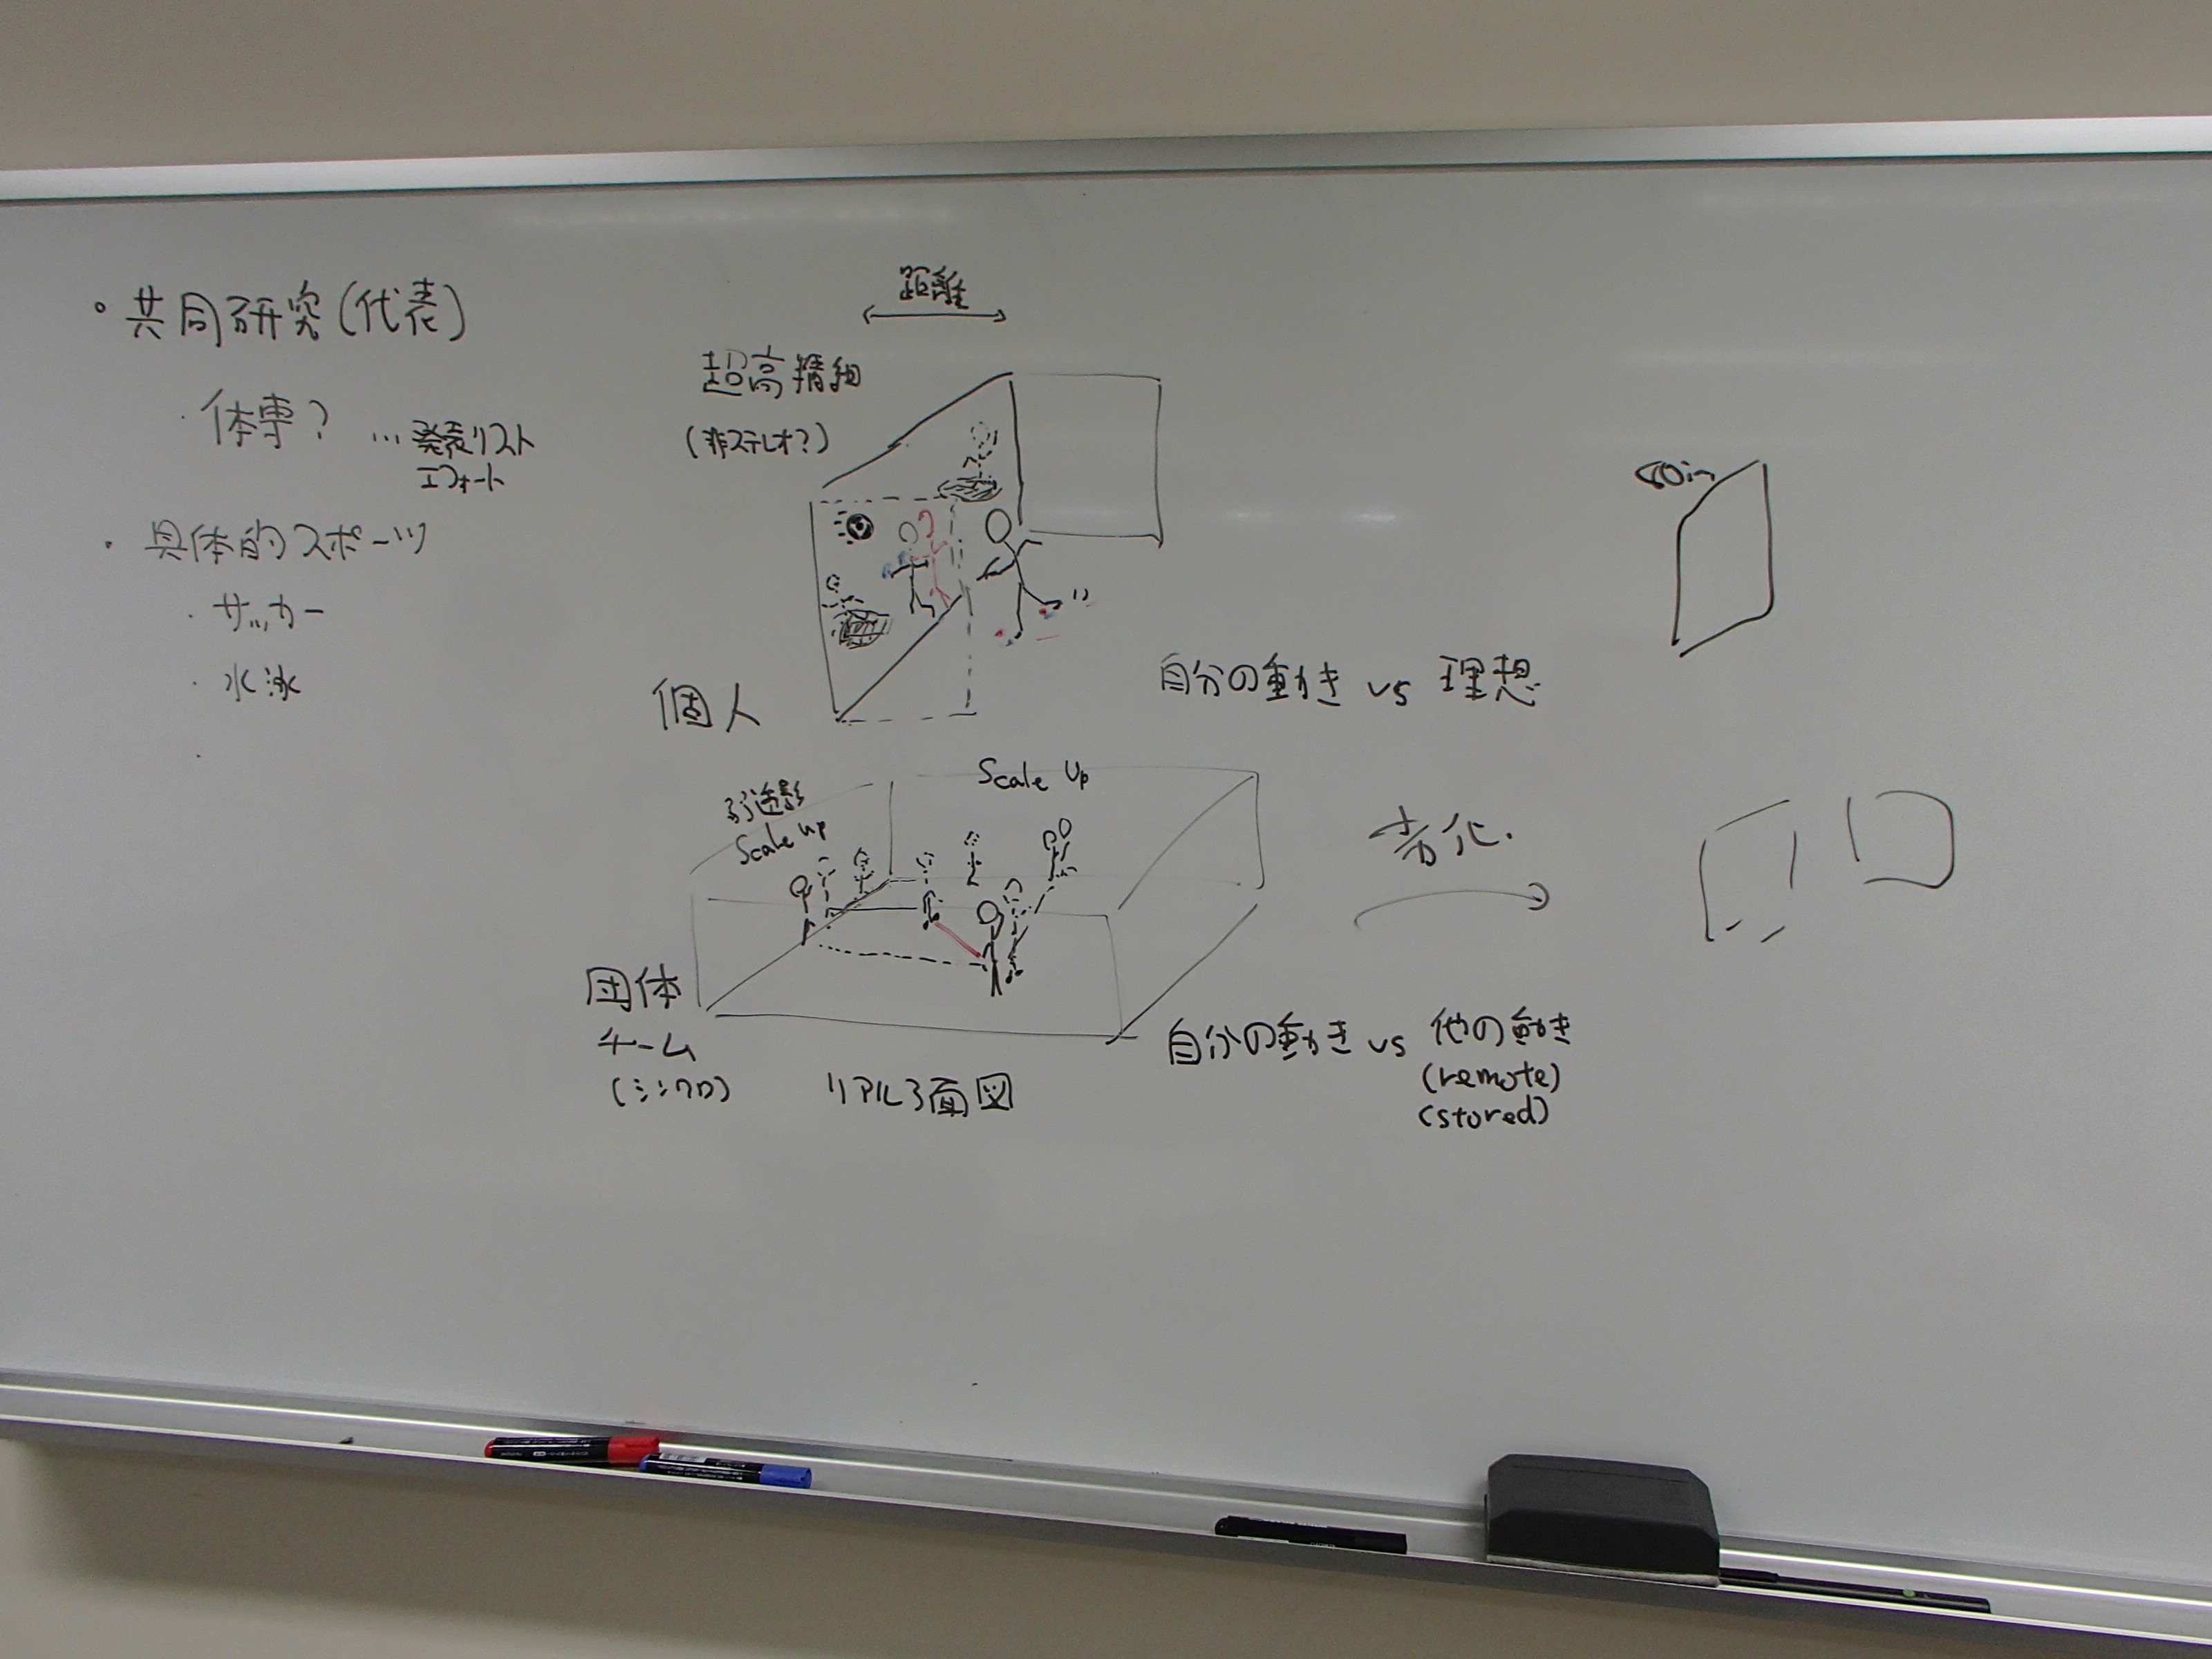 。共同研究(代表)
・体専? … 発表リスト
エフォート
・具体的スポーツ
・サッカー
・水泳
・
距離
超高精細
(非ステレオ?)
個人
自分の動き vs 理想
Scale Up
Scale up
劣化.
団体
チーム
(シンクロ)
リアル3面図
自分の動き vs 他の動き
(remote)
(stored)